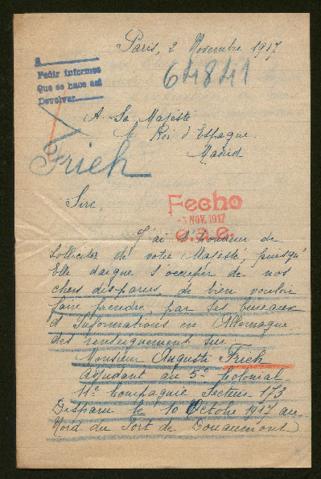 Paris, 2 Novembre 1917
64841
Pedir informes
Que se hace así
Devolver
A Sa Majesté
Le Roi d'Espagne
Madrid
Frich
Sire,
Fecho
3 NOV. 1917
J'ai l'honneur de
solliciter de votre Majesté, puisqu'
Elle daigne s'occuper de nos
chers disparus, de bien vouloir
faire prendre, par ses bureaux
d'Informations en Allemagne
des renseignements sur
Monsieur Auguste Frich
adjudant au 5e Colonial
11e Compagnie Secteur 173
Disparu le 10 Octobre 1917 au
Nord du Fort de Douaumont